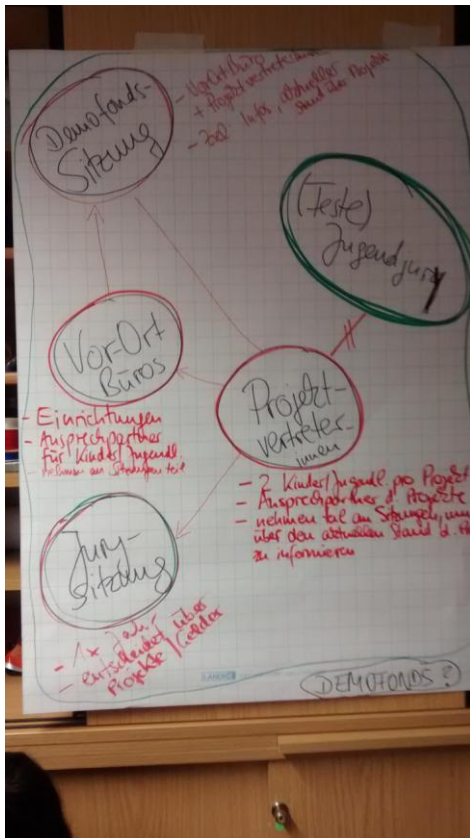 Demofonds-
Sitzung
- VorOrtBüro
+ Projektvertreterinnen
- Infos, aktueller
Stand über Projekte
(Feste)
Jugendjury
Vor-Ort
Büros
- Einrichtungen
- Ansprechpartner
für Kinder/Jugendl.
- nehmen an Sitzungen teil
Projekt-
vertreter-
innen
- 2 Kinder/Jugendl. pro Projekt
- Ansprechpartner d. Projekte
- nehmen teil an Sitzungen, um
über den aktuellen Stand d.
zu informieren
Jury-
Sitzung
- 1x Jahr
- entscheidet über
Projekte/Gelder
DEMOFONDS?